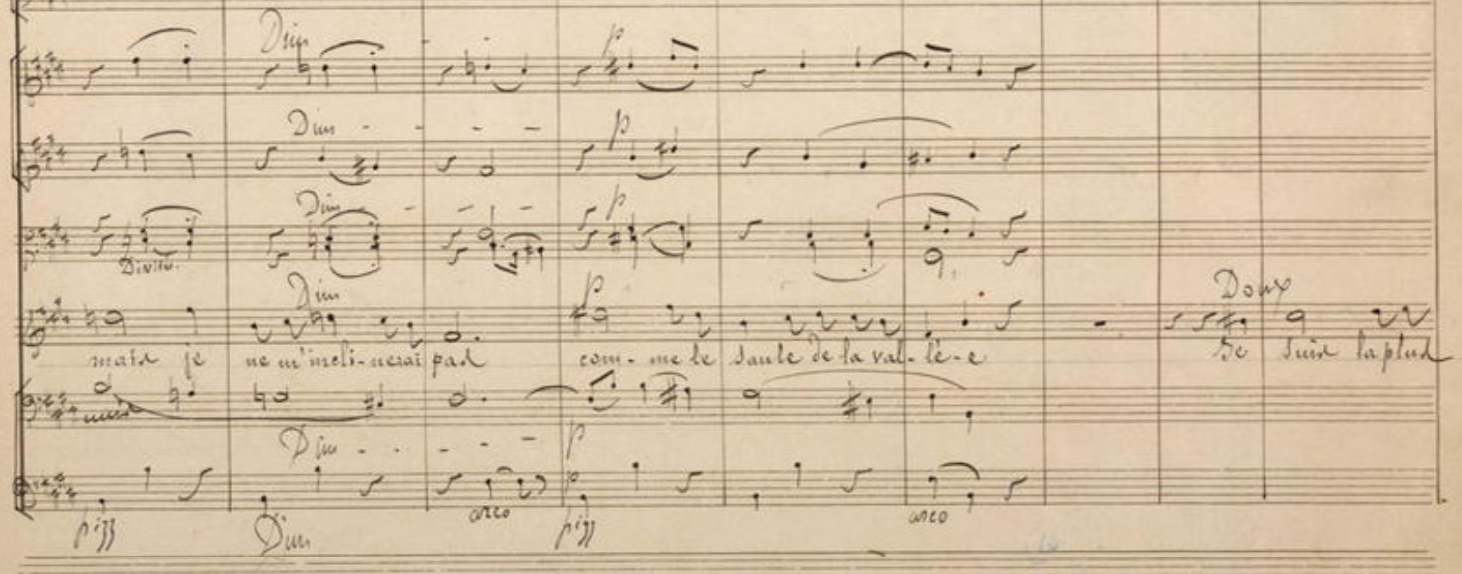 Dim - -
p
Dim - - - -
p
Dim - - - -
p
Divisi.
Dim
p
Doux
mais je ne m'inclinerai pas com-me le saule de la val-lé-e Je suis la plus
Dim - - - -
p
arco
arco
pizz
Dim
pizz